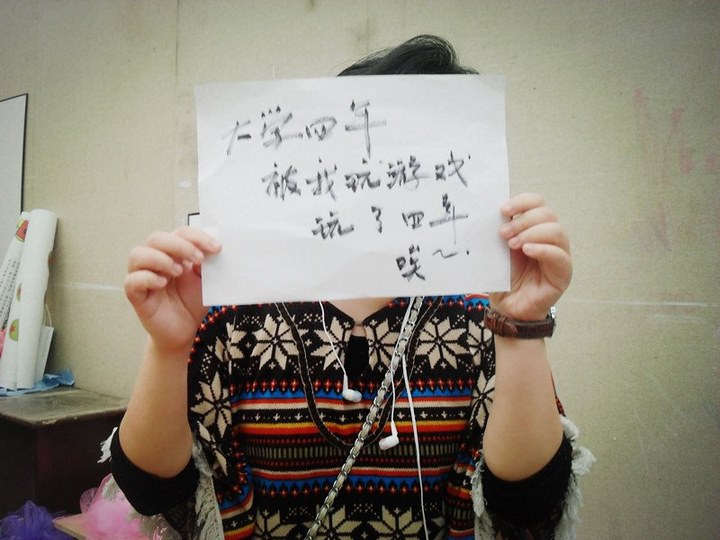 大学四年
被我玩游戏
玩了四年
唉~.